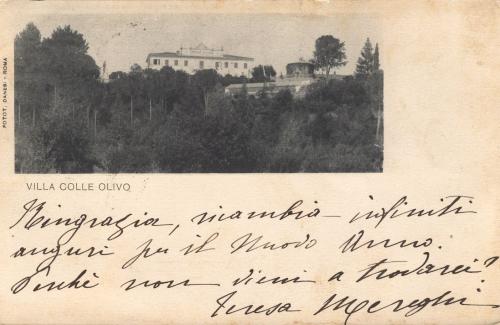 FOTOT. DANESI - ROMA
VILLA COLLE OLIVO
Ringrazia, ricambia - infiniti
auguri per il Nuovo Anno.
Perchè non vieni a trovarci?
Teresa Mereghi